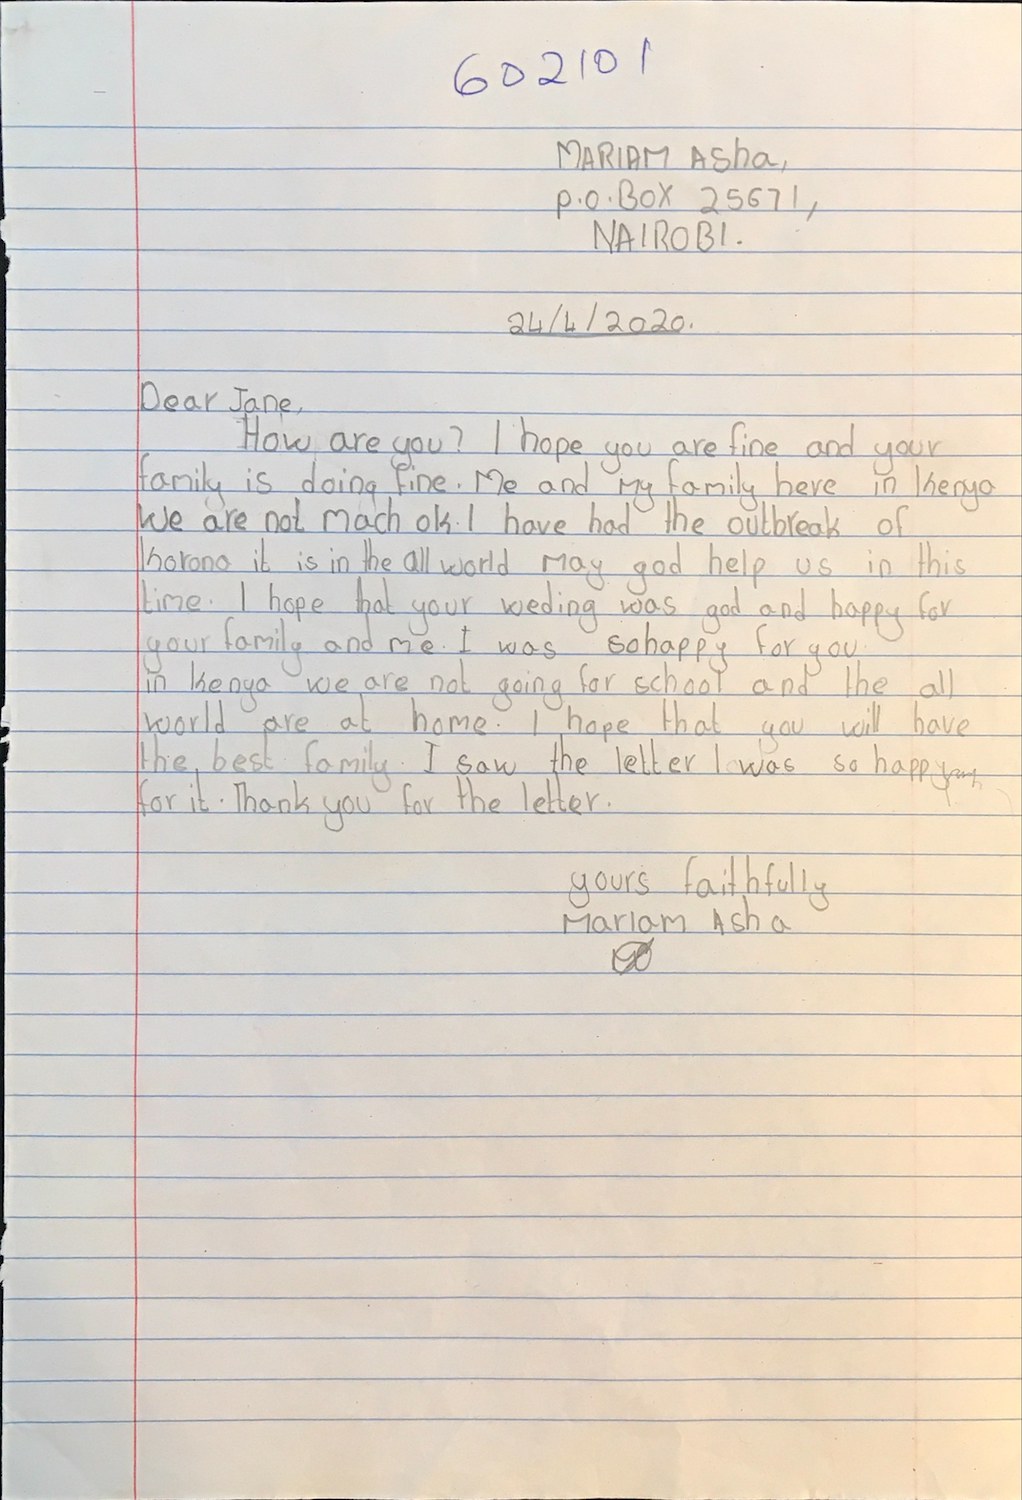 602101
MARIAM Asha,
P.O.BOX 25671,
NAIROBI.
24/4/2020.
Dear Jane,
How are you? I hope you are fine and your
family is doing fine. Me and My family here in Kenya
We are not mach ok. I have had the outbreak of
korona it is in the all world May god help us in this
time. I hope that your weding was god and happy for
your family and me. I was sohappy for you
in Kenya we are not going for school and the all
world are at home. I hope that you will have
the best family. I saw the letter I was so happy
for it. Thank you for the letter.
yours faithfully
Mariam Asha